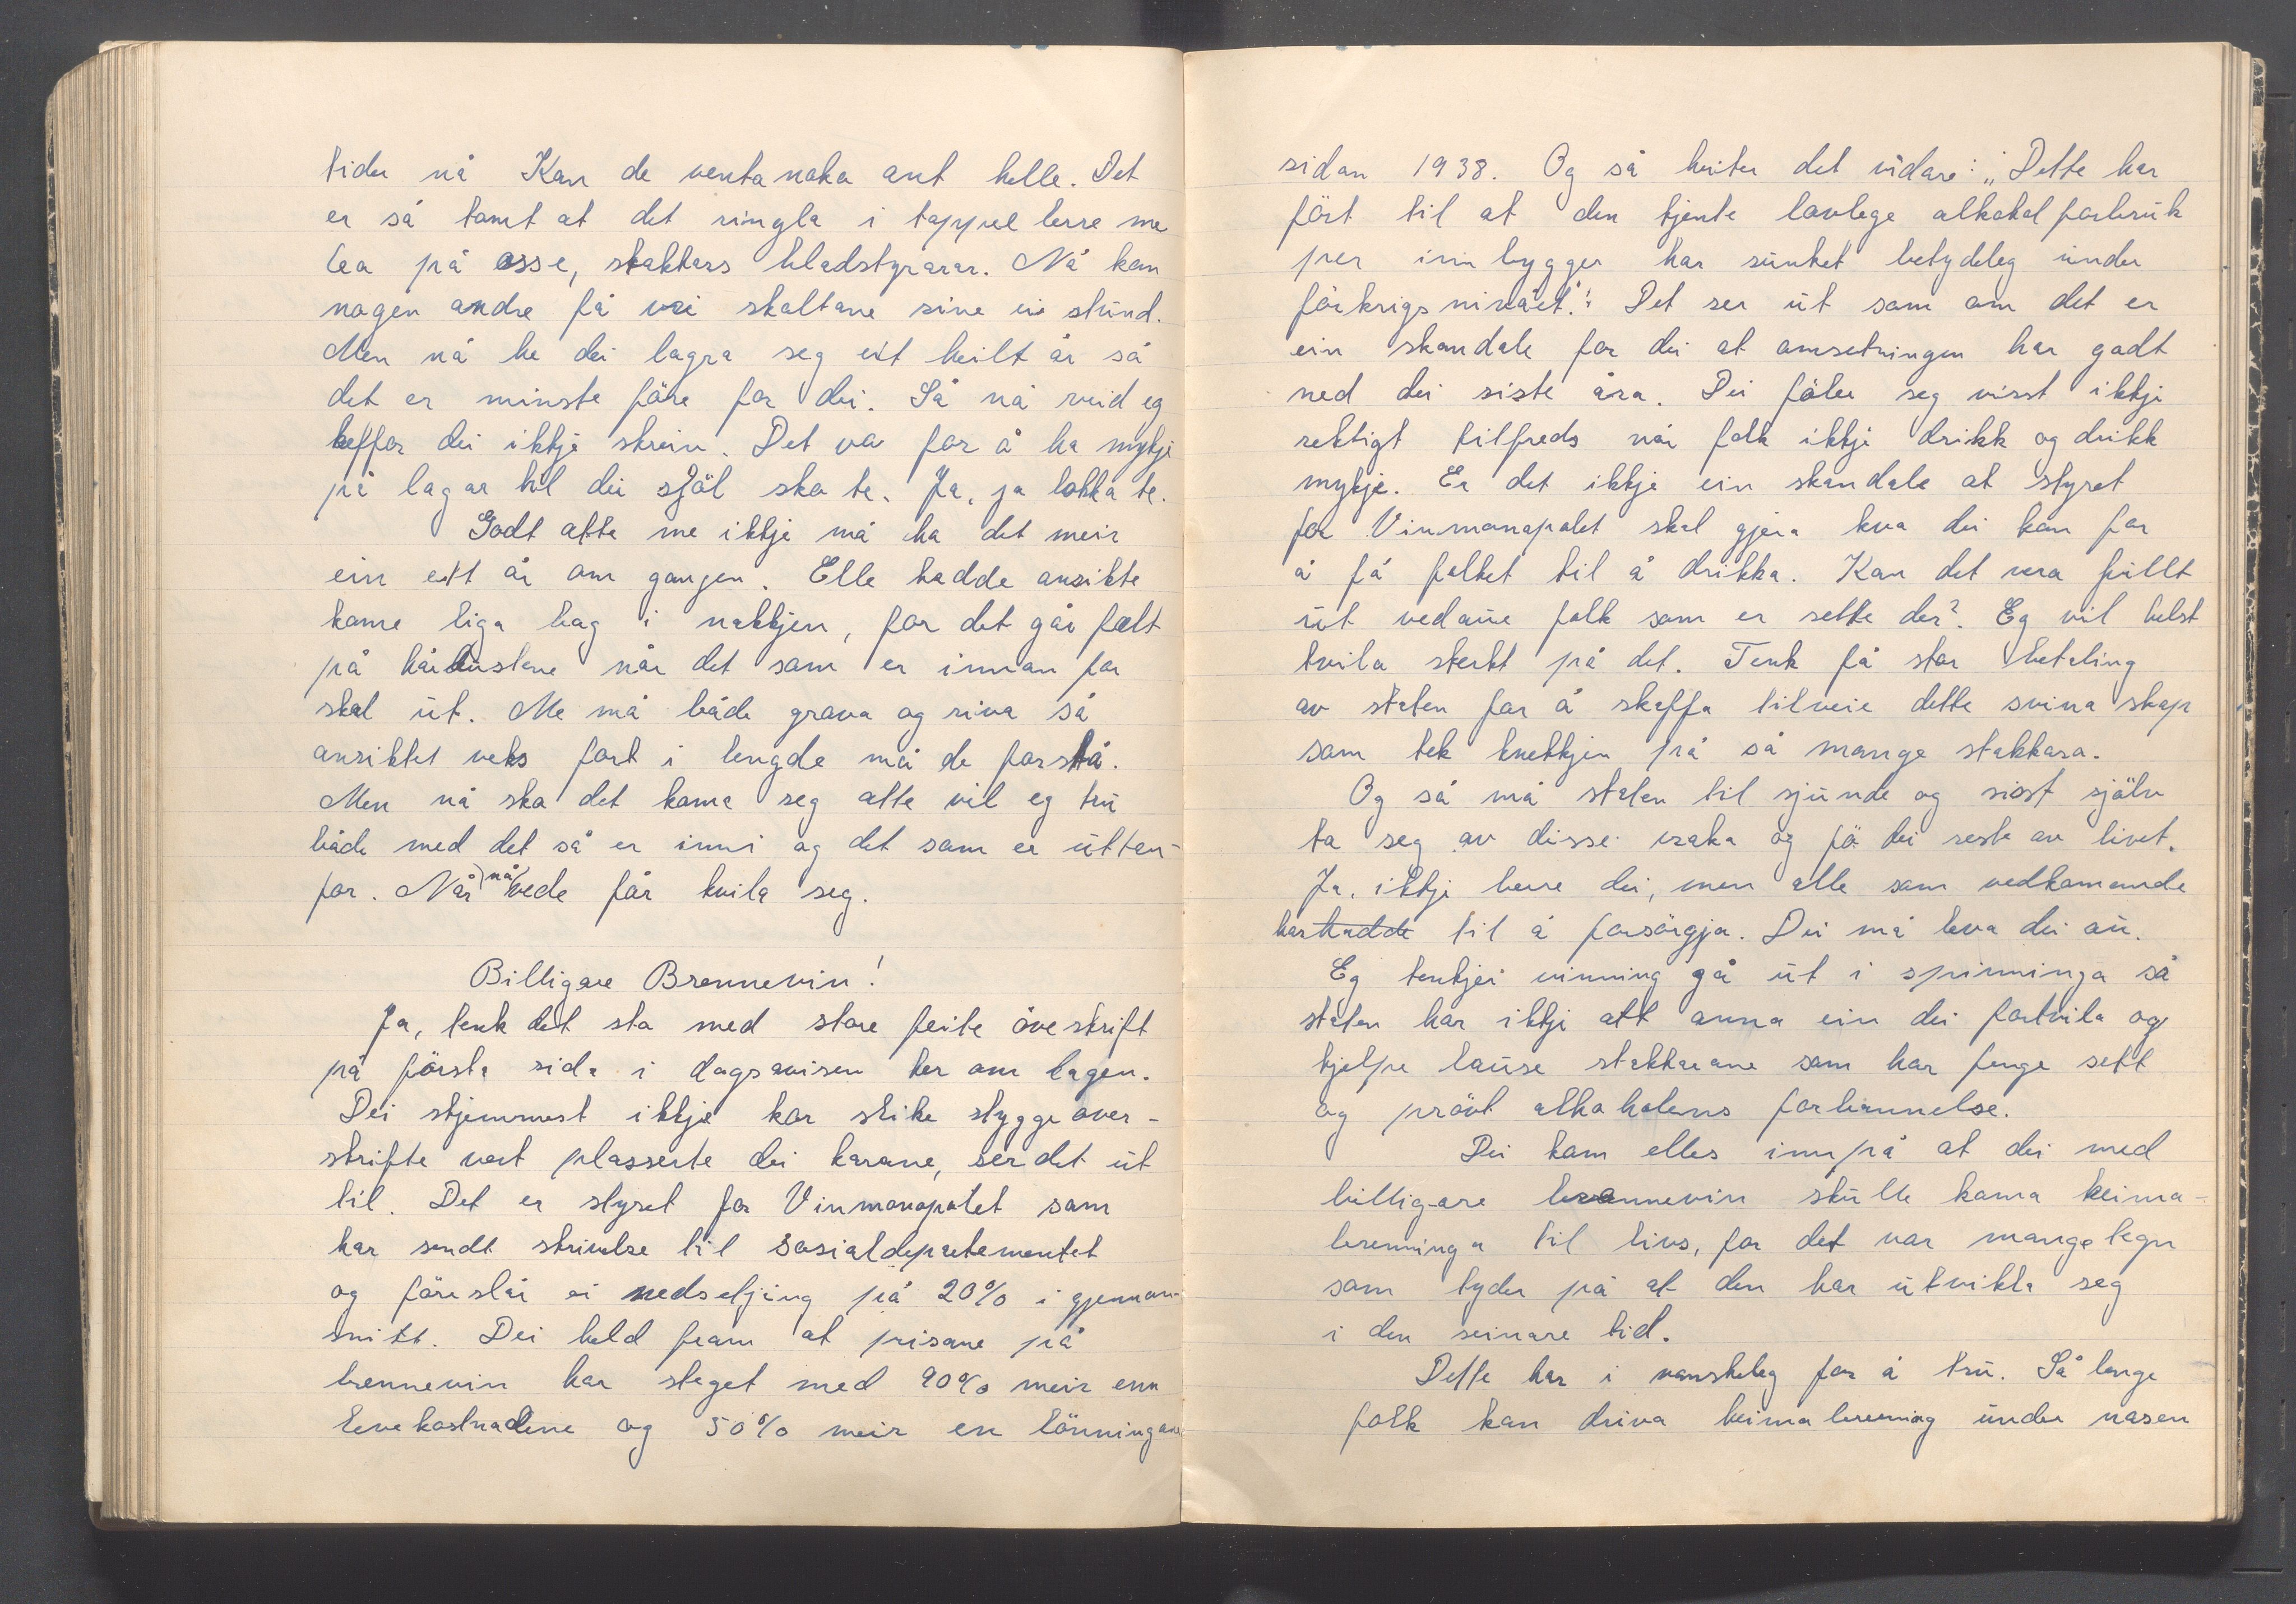 tider nå Kan de venta noko ant helle. Det
er så tomt at det ringla i toppel berre me
lea på osse, stakkars bladstyrarar. Nå kan
nogen andre få vri skaltane sine ei stund.
Men nå he dei lagra seg eit heilt år så
det er minste fåre for dei. Så nå veid eg
keffor dei ikkje skreiv. Det va for å ha mykje
på lagar til dei sjöl ska te. Ja, ja lokka te.
Godt atte me ikkje må ha det meir
ein eitt år om gongen. Elle hadde ansikte
kome liga bag i nakkjen, for det går fælt
på hårdustane når det som er innan for
skal út. Me må både grava og riva så
ansiktet veks fort i lengde må de forstå.
Men nå ska det koma seg atte vil eg trú
både med det så er inni og det som er útten-
for. Når nå vede får kvila seg.
Billigare Brennevin!
Ja, tenk det sto med store feite öveskrift
på första sida i dagsavisen her om dagen.
Dei skjemmest ikkje kor slike stygge over-
skrifte vert plasserte dei karane, ser det út
til. Det er styret for Vinmonopolet som
har sendt skrivelse til Sosialdepartementet
og föreslår ei nedsetjing på 20% i gjennom-
snitt. Dei held fram at prisane på
brennevin har steget med 90% meir enn
levekostnadene og 50% meir en lönningane
sidan 1938. Og så heiter det vidare: „Dette har
fört til at den kjente lovlege alkohol forbrúk
per innbygger har súnket betydeleg únder
förkrigsnivået." Det ser út som om det er
ein skandale for dei at omsetningen har gådt
ned dei siste åra. Dei föler seg visst ikkje
rektigt tilfreds når folk ikkje drikk og drikk
mykje. Er det ikkje ein skandale at styret
for Vinmonopolet skal gjera kva dei kan for
å få folket til å drikka. Kan det vera fúllt
út vedaúe folk som er sette der? Eg vil helst
tvila sterkt på det. Tenk få stor betaling
av staten for å skaffa tilveie dette svina skap
som tek knekkjen på så mange stakkara.
Og så må staten til sjúnde og sisst själv
ta seg av disse vraka og fö dei reste av livet.
Ja, ikkje berre dei, men alle som vedkomande
har hadde til å forsörgja. Dei må leva dei aú.
Eg tenkjer vinning gå út i spinninga så
staten har ikkje att anna ein dei fortvila og
hjelpe laúse stakkarane som har fenge sett
og prövt alkoholens forbannelse.
Dei kom elles innpå at dei med
billigare brennevin skúlle koma heima-
brenninga til livs, for det var mange tegn
som tyder på at den har útvikla seg
i den seinare tid.
Dette har i vanskeleg for å trú. Så lenge
folk kan driva heimabrenning únder nasen